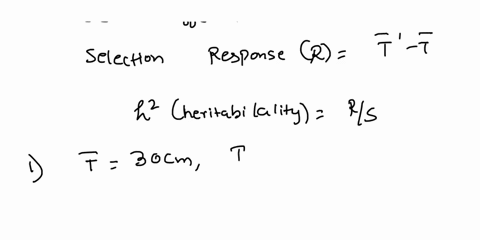 Selection Response (R) = T̅' - T̅
h² (heritabilality) = R/S
1) T̅ = 30cm, T